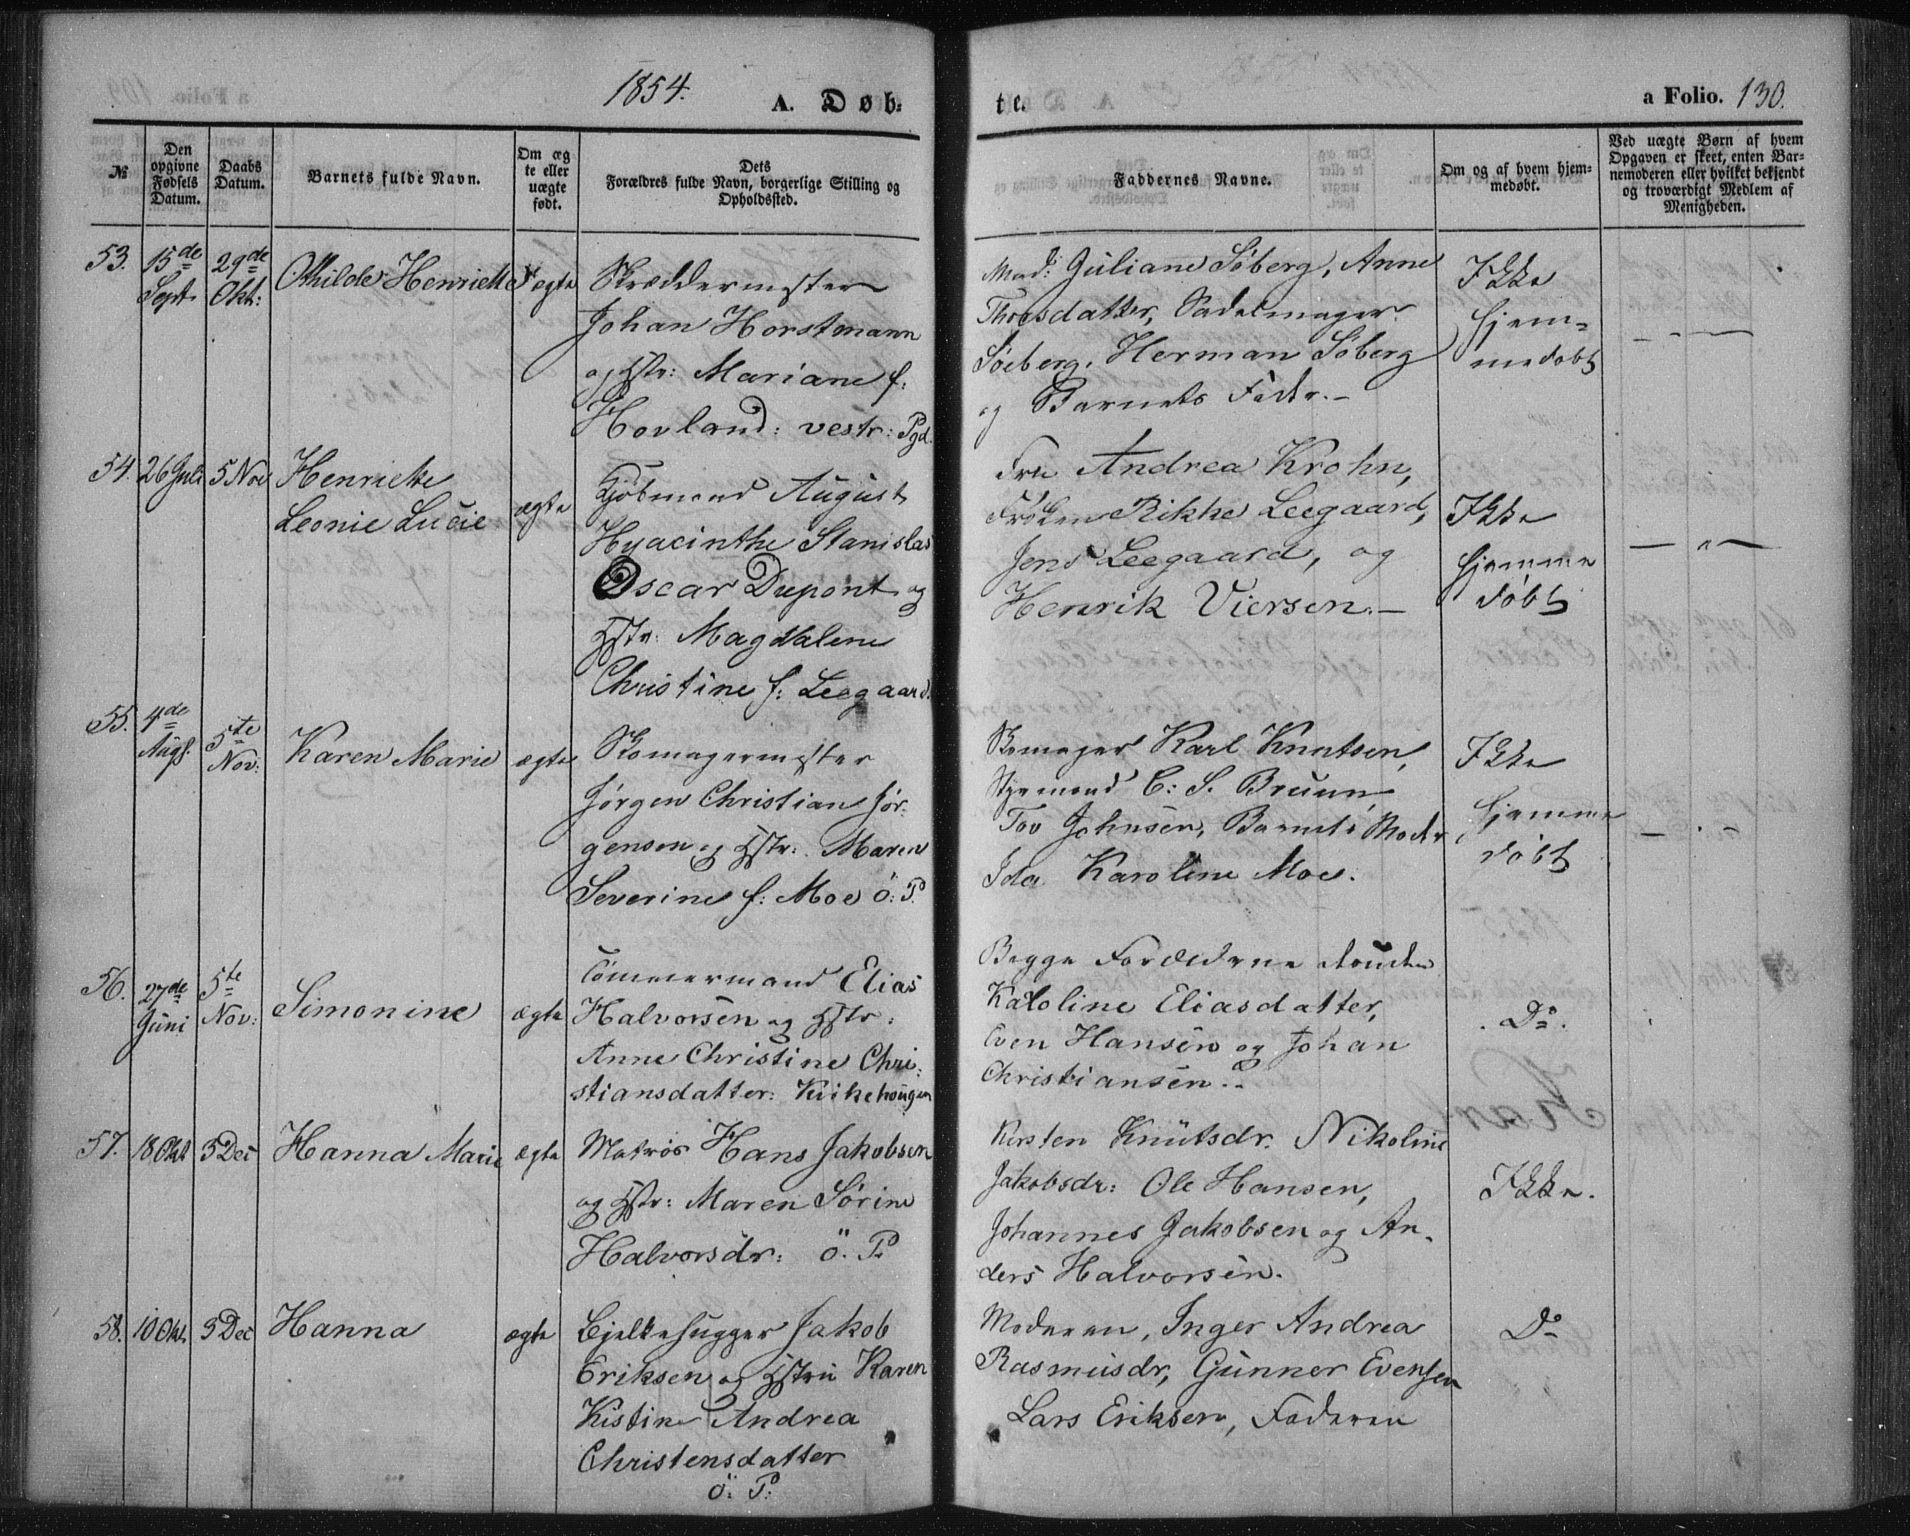 1854.
A. Døb-
te.
a Folio. 130.
№
Den opgivne Fødsels Datum.
Daabs Datum.
Barnets fulde Navn.
Om ægte eller uægte født.
Dets Forældres fulde Navn, borgerlige Stilling og Opholdssted.
Faddernes Navne.
Om og af hvem hjemmedøbt.
Ved uægte Børn af hvem Opgaven er skeet, enten Barnemoderen eller hvilket bekjendt og troværdigt Medlem af Menigheden.
53.
15de Sept.
29de Okt:
Othilde Henriette
ægte
Skræddermester
Johan Horstmann
og Hstr: Mariane f:
Hovland: vestr: Pgd.
Mad: Juliane Söberg, Anne
Thorsdatter, Sadelmager
Söeberg, Herman Söberg
og Barnets Fader.-
Ikke
hjem=
medöbt
54.
26 Juli
5 Nov
Henriette
Leonie Lucie
ægte
Kjöbmand August
Hyacinthe Stanislas
Oscar Dupont og
Hstr: Magdalene
Christine f: Leegaard.
Fru Andrea Krohn,
Fröken Rikke Leegaard,
Jens Leegaard, og
Henrik Viersen.-
Ikke
hjemme
döbt
— " —
55.
4de Augs.
5te Nov:
Karen Marie
ægte
Skomagermester
Jörgen Christian Jör-
gensen og Hstr: Maren
Severine f: Moe ö: P.
Skomager Karl Knutsen,
Styrmand C: S. Bruun
Tov Johnsen, Barnets Moder
Ida Karoline Moe.
Ikke
hjemme
döbt
56.
27de Juni
5te Nov:
Simonine
ægte
Tömmermand Elias
Halvorsen og Hstr:
Anne Christine Chri-
stiansdatter: Kirkehougen
Begge Forældrene
Karoline Eliasdatter,
Even Hansen og Johan
Christiansen..
. Do.
57.
18 Okt
3 Dec
Hanna Marie
ægte
Matros Hans Jakobsen
og Hstr: Maren Sörine
Halvorsdr: ö. P
Kirsten Knutsdr. Nikoline
Jakobsdr: Ole Hansen,
Johannes Jakobsen og An-
ders Halvorsen.
Ikke.
58.
10 Okt.
3 Dec
Hanna
ægte
Bjelkehugger Jakob
Eriksen og Hstru Karen
Kistine Andrea
Christensdatter
ö: P:
Moderen, Inger Andrea
Rasmusdr, Gunner Evensen
Lars Eriksen, Faderen
Do